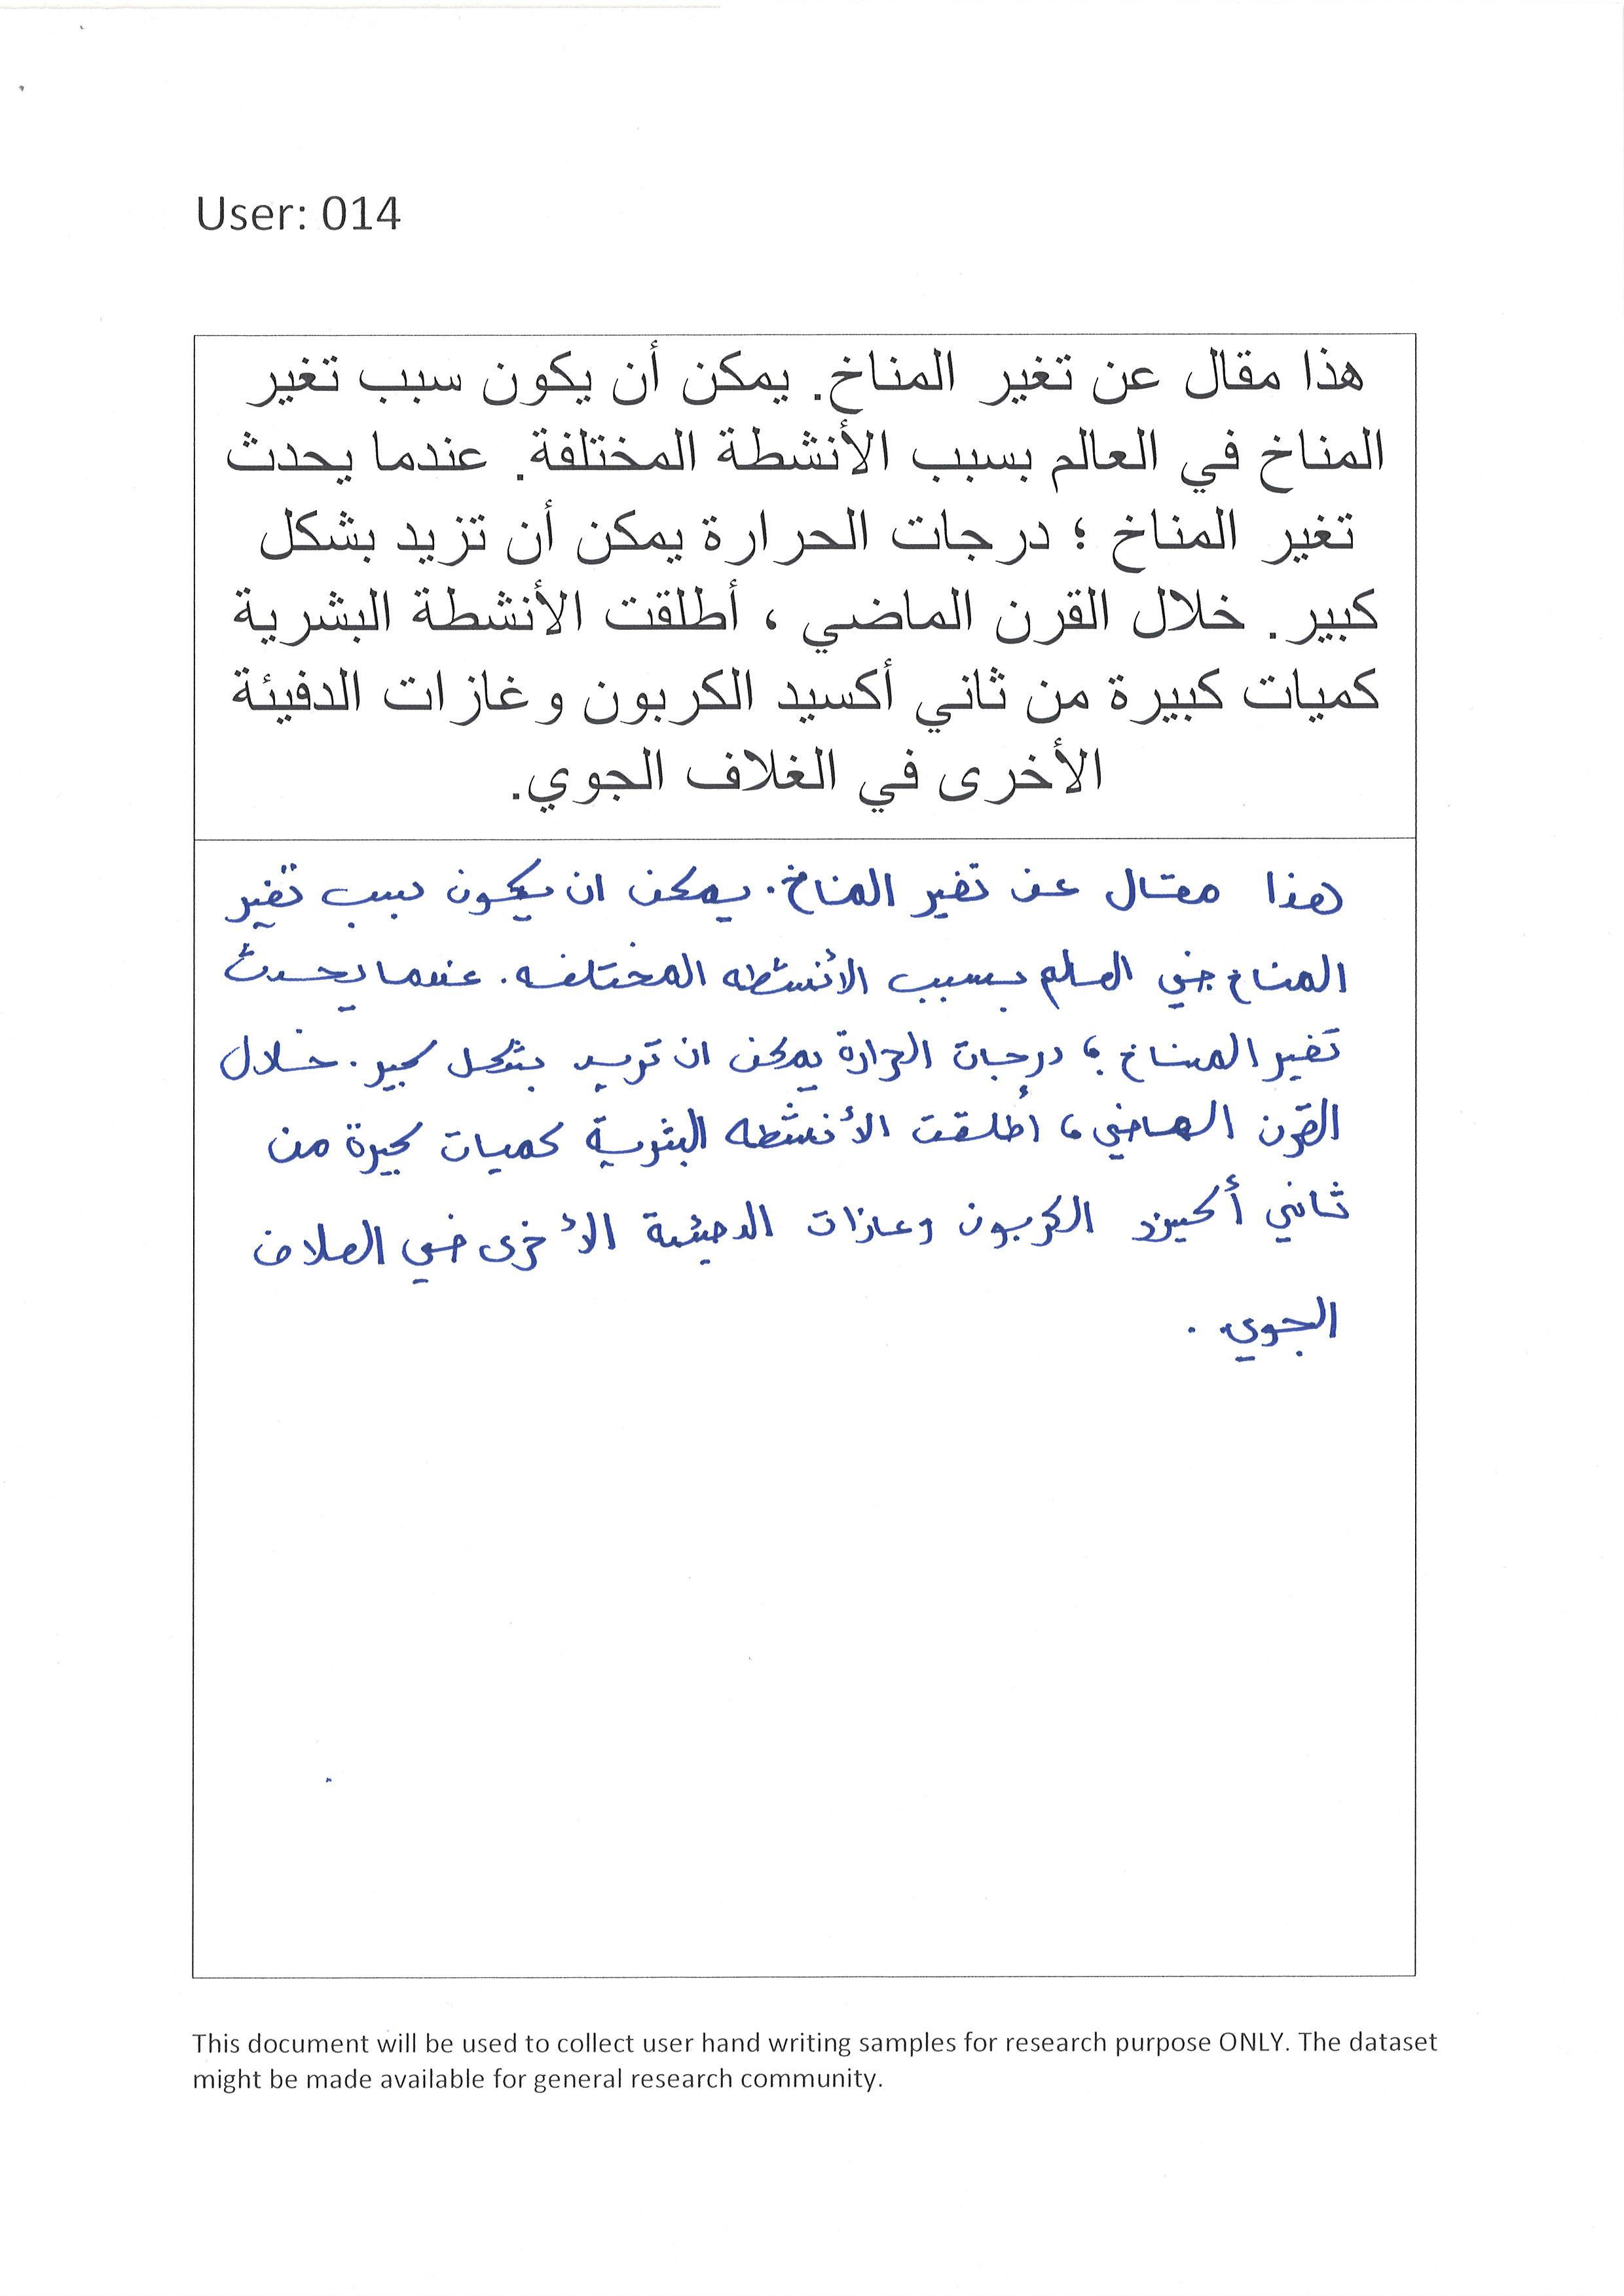 User: 014
هذا مقال عن تغير المناخ. يمكن أن يكون سبب تغير
المناخ في العالم بسبب الأنشطة المختلفة. عندما يحدث
تغير المناخ ؛ درجات الحرارة يمكن أن تزيد بشكل
كبير. خلال القرن الماضي ، أطلقت الأنشطة البشرية
كميات كبيرة من ثاني أكسيد الكربون وغازات الدفيئة
الأخرى في الغلاف الجوي.
هذا مقال عن تغير المناخ. يمكن ان يكون سبب تغير
المناخ في العالم بسبب الأنشطه المختلفه. عندما يحدث
تغير المناخ ؛ درجات الحرارة يمكن ان تزيد بشكل كبير. خلال
القرن الماضي، أطلقت الأنشطه البشرية كميات كبيرة من
ثاني أكسيد الكربون وغازات الدفيئة الأخرى في الغلاف
الجوي.
This document will be used to collect user hand writing samples for research purpose ONLY. The dataset
might be made available for general research community.